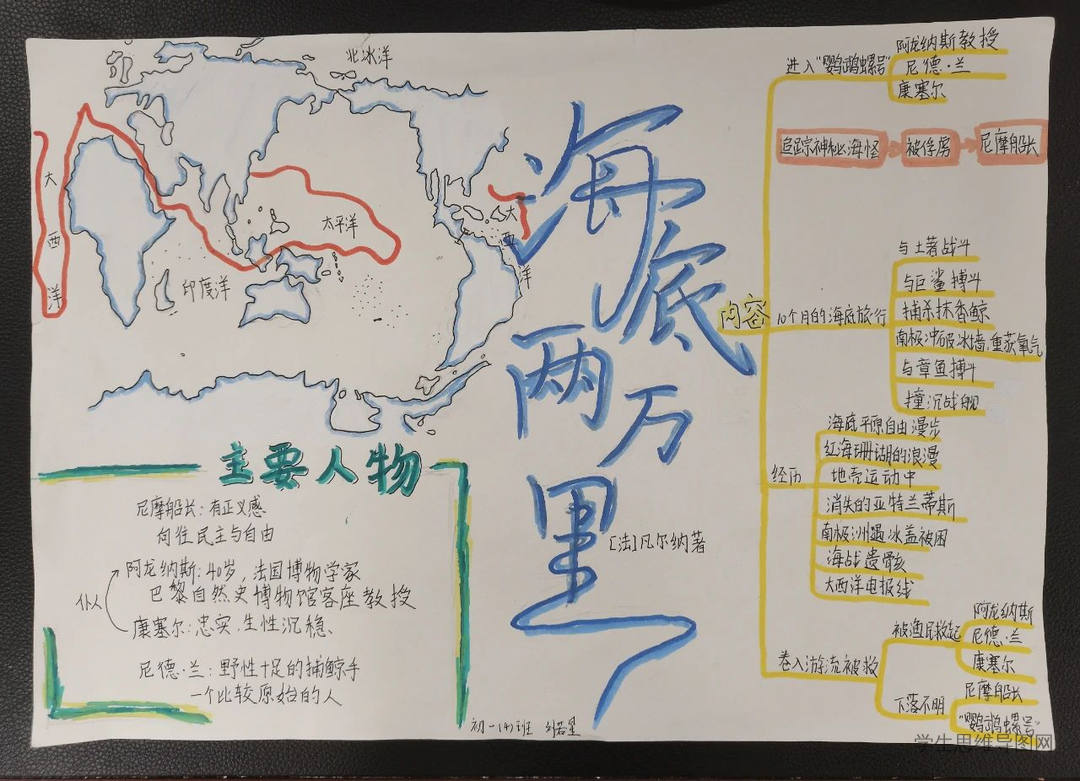 北冰洋
大
西
洋
太平洋
大
西
洋
印度洋
海底两万里
[法]凡尔纳著
主要人物
尼摩船长：有正义感
向往民主与自由
阿龙纳斯：40岁，法国博物学家
巴黎自然史博物馆客座教授
仆人
康塞尔：忠实，生性沉稳、
尼德·兰：野性十足的捕鲸手
一个比较原始的人
内容
进入"鹦鹉螺号"
阿龙纳斯教授
尼德·兰
康塞尔
追踪神秘海怪
被俘虏
尼摩船长
10个月的海底旅行
与土著战斗
与巨鲨搏斗
捕杀抹香鲸
南极冲破冰墙，重获氧气
与章鱼搏斗
撞沉战舰
经历
海底平原自由漫步
红海珊瑚的浪漫
地壳运动中
消失的亚特兰蒂斯
南极洲遇冰盖被困
海战遗骨亥
大西洋电报线
卷入游流被救
被渔民救起
阿龙纳斯
尼德·兰
康塞尔
下落不明
尼摩船长
"鹦鹉螺号"
初一(4)班
学生思维导图网